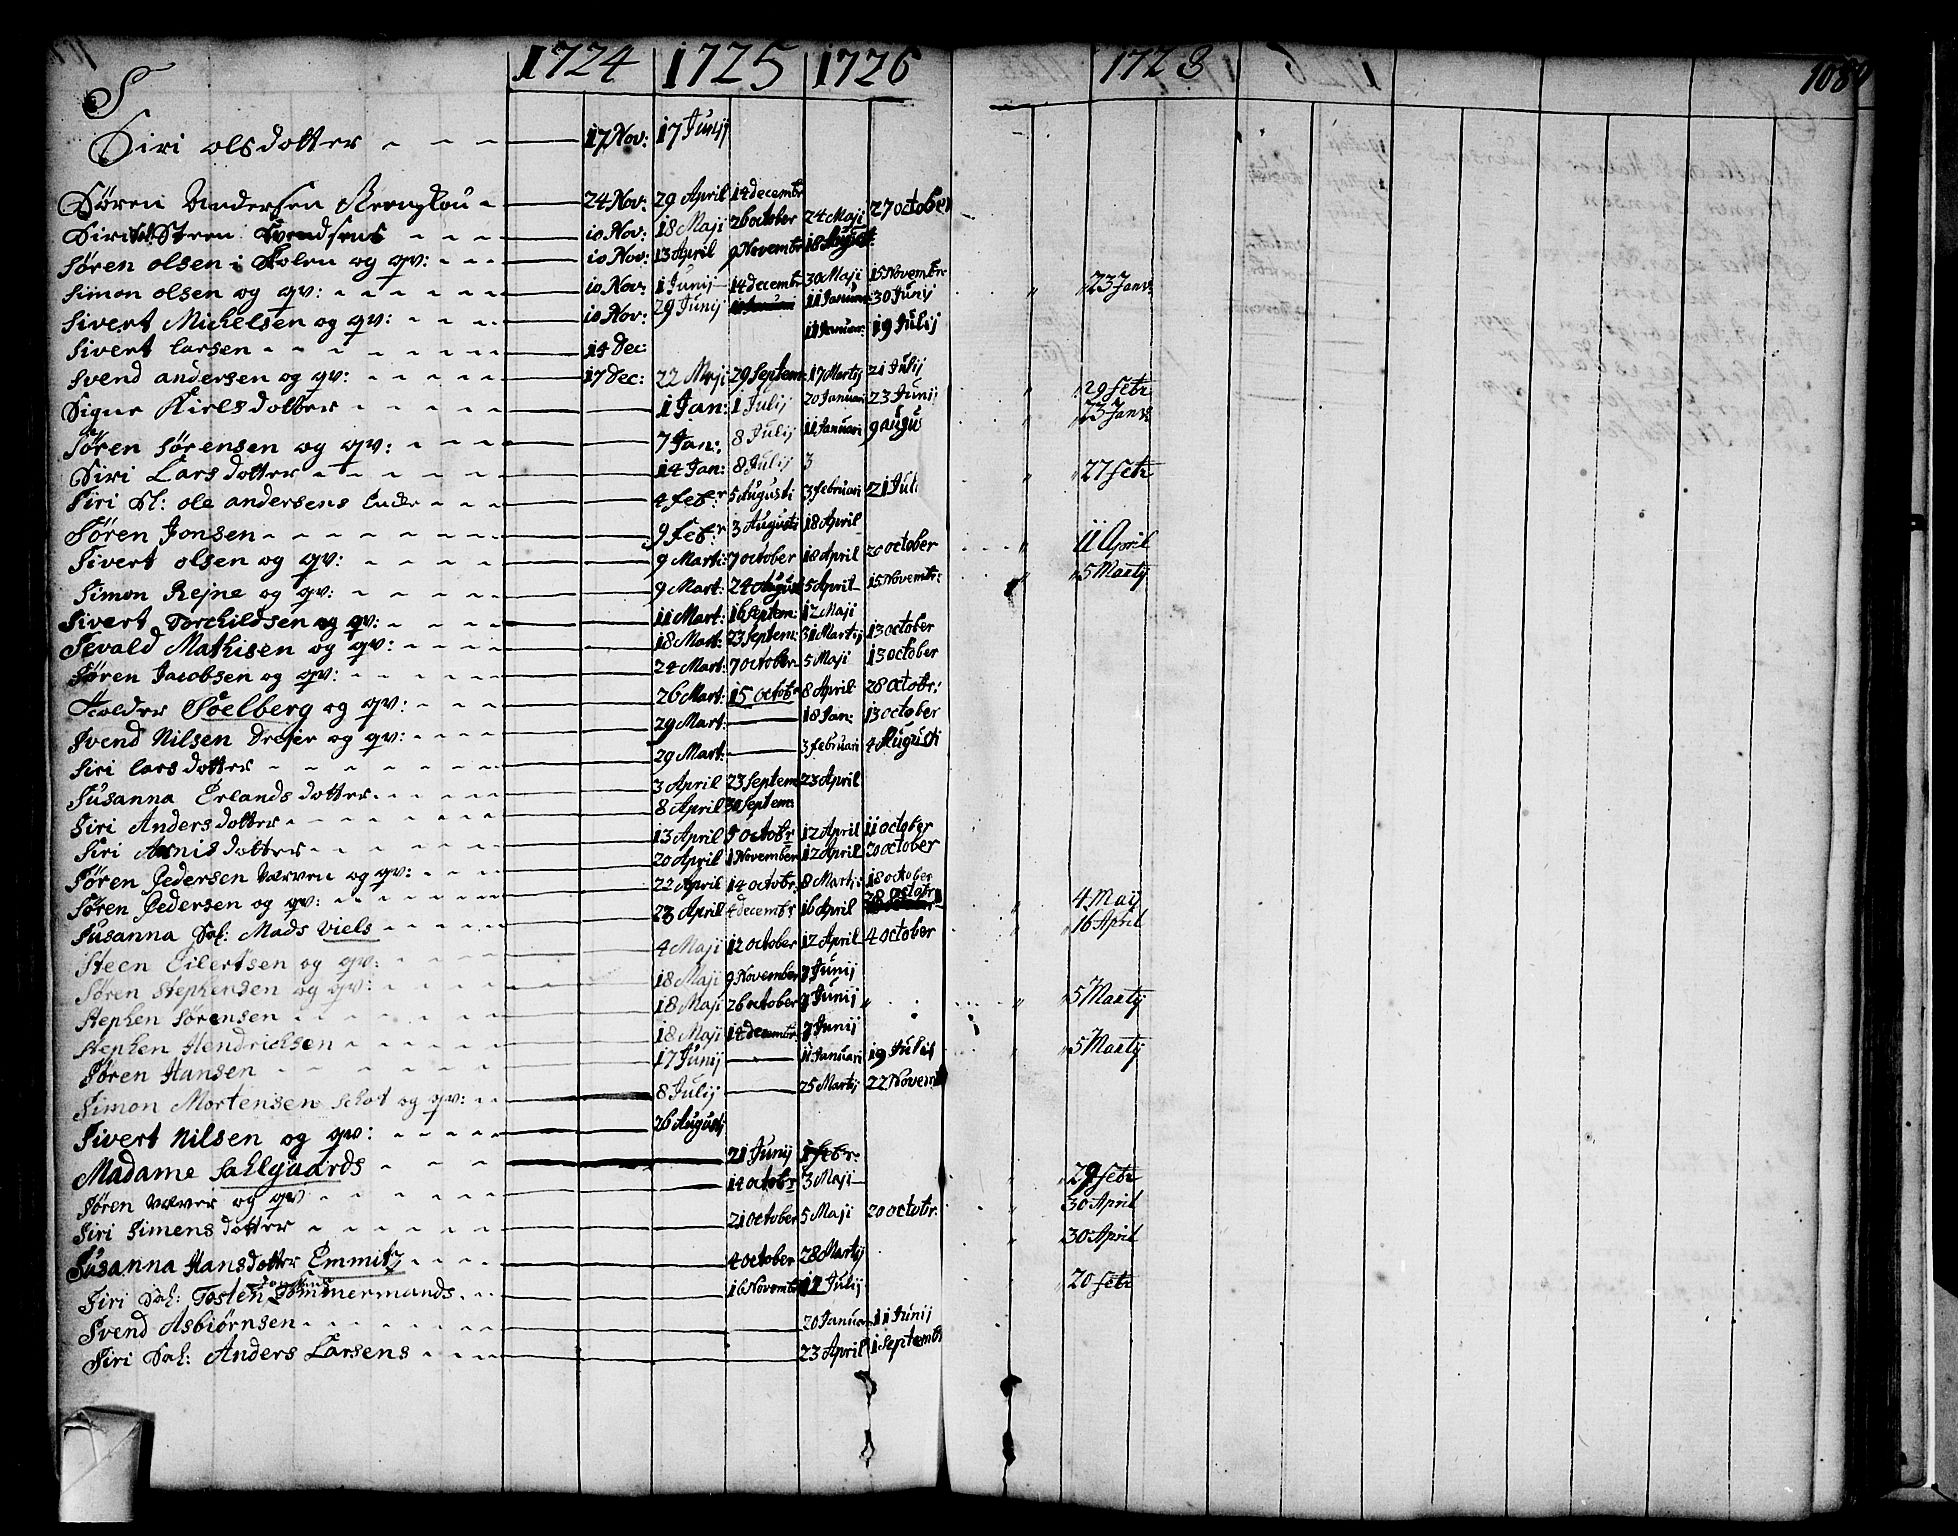 1724 1725 1726 1728
S
Siri olsdotter 17 Nov: 17 Junij
Søren Andersen 24 Nov: 29 April 14 decembr
Siri Steen Svendsens 10 Nov: 18 Maji 26 october 24 Maji 27 october
Søren olsen i Skolen og qv: 10 Nov: 13 April 9 Novembr 18 August
Simon olsen og qv: 10 Nov: 1 Junij 14 decembr 30 Maji 15 Novembr 23 Janr
Sivert Michelsen og qv: 10 Nov: 29 Junij 11 Januar 30 Junij
Sivert Larsen 14 Dec: 11 Januar: 19 Julij
Svend andersen og qv: 17 Dec: 22 Maji 29 Septem: 17 Martij 21 Julij
Signe Kielsdotter 1 Jan: 1 Julij 20 Januari 23 Junij 29 febr
Søren Sørensen og qv: 7 Jan: 8 Julij 11 Januari 9 augu 23 Janr
Siri Larsdotter 14 Jan: 8 Julij 3
Siri Sl: ole andersens Encke 4 febr 5 Augusti 3 februari 21 Jul 27 febr
Søren Jonsen 9 febr 3 Augusti 18 April
Sivert olsen og qv: 9 Mart: 7 october 18 April 20 october 11 April
Simon Rejne og qv: 9 Mart: 24 August 5 April 15 Novembr: 5 Martij
Sivert Torchildsen og qv: 11 Mart: 16 Septem: 12 Maji
Sevald Mathisen og qv: 18 Mart: 23 Septem: 31 Martij 13 october
Søren Jacobsen og qv: 24 Mart: 7 october 5 Maji 13 october
Holder Soelberg og qv: 26 Mart: 15 octobr 8 April 28 octobr:
Svend Nilsen Dreier og qv: 29 Mart: 18 Jan: 13 october
Siri Larsdotter 29 Mart: 3 februari 4 Augusti
Susanna Erlandsdotter 3 April 23 Septem 23 April
Siri Andersdotter 8 April 30 Septem:
Siri Arnisdotter 13 April 5 octobr 12 April 11 october
Søren Pedersen Væver og qv: 20 April 1 November 12 April 20 october
Søren Pedersen og qv: 22 April 14 octobr: 8 Martij 18 october
Susanna Sal: Mads Viels 23 April 4 decembr 16 April 28 octobr 4 Maij
Steen Eilertsen og qv: 4 Maji 12 october 12 April 4 october 16 April
Søren Stephensen og qv: 18 Maji 9 November 7 Junij
Stephen Sørensen 18 Maji 26 october 7 Junij 5 Martij
Stephen Hendrichsen 18 Maji 14 decembr 7 Junij
Søren Hansen 17 Junij 11 Januari 19 Julij 5 Martij
Simon Mortensen Schot og qv: 8 Julij 25 Martij 22 Novem
Sivert Nilsen og qv: 26 Augusti
Madame Sahlgaards 21 Junij 1 febr:
Søren Væver og qv 14 octobr 3 Maji 29 febr
Siri Simensdotter 21 october 5 Maji 20 octobr: 30 April
Susanna Hansdotter Emmitz 4 october 28 Martij 30 April
Siri Sal: Tosten Tømmermands 16 Novembr 12 Julij 20 febr
Svend Asbiørnsen 20 Januar 11 Junij
Siri Sal: Anders Larsens 23 April 1 Septembr